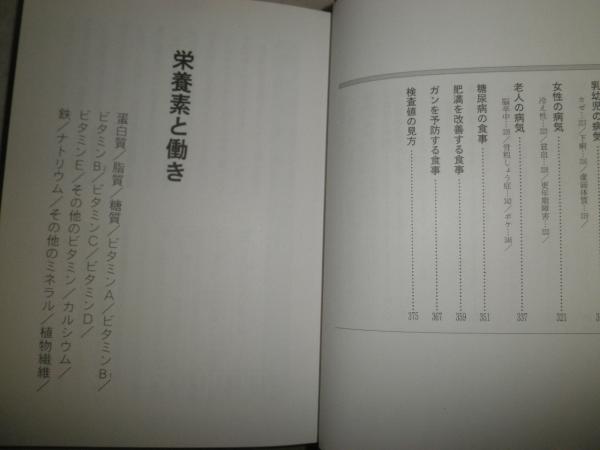 乳幼児の病気
かぜ…／下痢…／虚弱体質…／
女性の病気………321
冷え性…／貧血…／更年期障害…／
老人の病気………337
脳卒中…／骨粗しょう症…／ボケ…／
糖尿病の食事………351
肥満を改善する食事………359
ガンを予防する食事………367
検査値の見方………375
栄養素と働き
蛋白質／脂質／糖質／ビタミンA／ビタミンB₁／
ビタミンB₂／ビタミンC／ビタミンD／
ビタミンE／その他のビタミン／カルシウム／
鉄／ナトリウム／その他のミネラル／植物繊維／